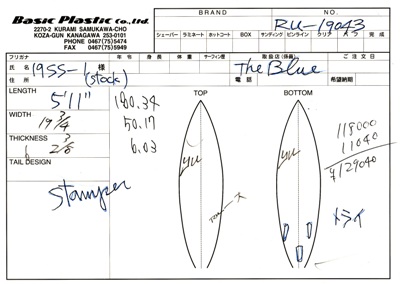 Basic Plastic Co., Ltd.
2270-2 KURAMI SAMUKAWA-CHO
KOZA-GUN KANAGAWA 253-0101
PHONE 0467(75)5474
FAX 0467(75)5949
BRAND NO.
RU-19043
シェーパー ラミネート ホットコート BOX サンディング ピンライン クリア 完成
フリガナ 年令 身長 体重 サーフィン歴 取扱店(係員) ご注文日
氏名 19SS-1 様 The Blue
住所 (stock) 電話 希望納期
LENGTH 5'11" 180.34
WIDTH 19 3/4 50.17
THICKNESS 2 3/8 6.03
TAIL DESIGN
Stamper
TOP
BOTTOM
118000
11040
¥129040
トライ